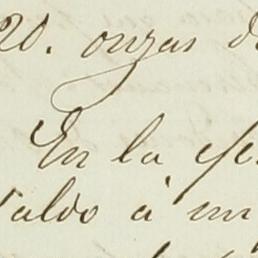 20. onzas d
En la
valdo á un